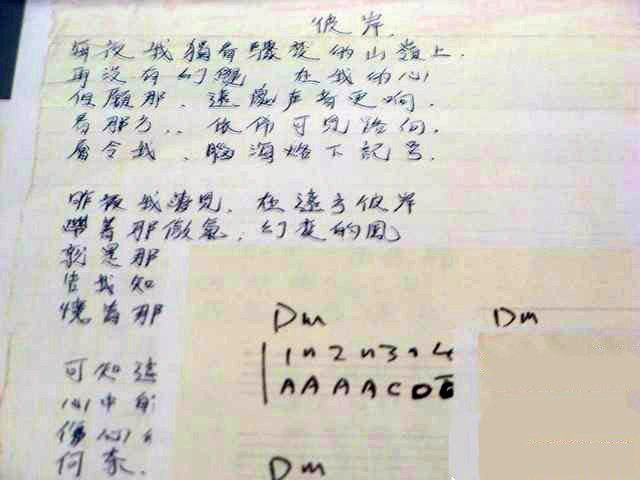 彼岸
每夜我獨看驟變的山嶺上.
再没有幻變 在我的心
但願那、遠處声音更响.
看那方.. 依佈可見路向.
層令我、腦海烙下記号.
昨夜我遠見. 在遠方彼岸
帶着那微氣. 幻变的風
就是那
告我知
燒着那
可知遠
心中
傷心
何奈.
Dm Dm
1 n 2 n 3 n 4
A A A A C D
Dm